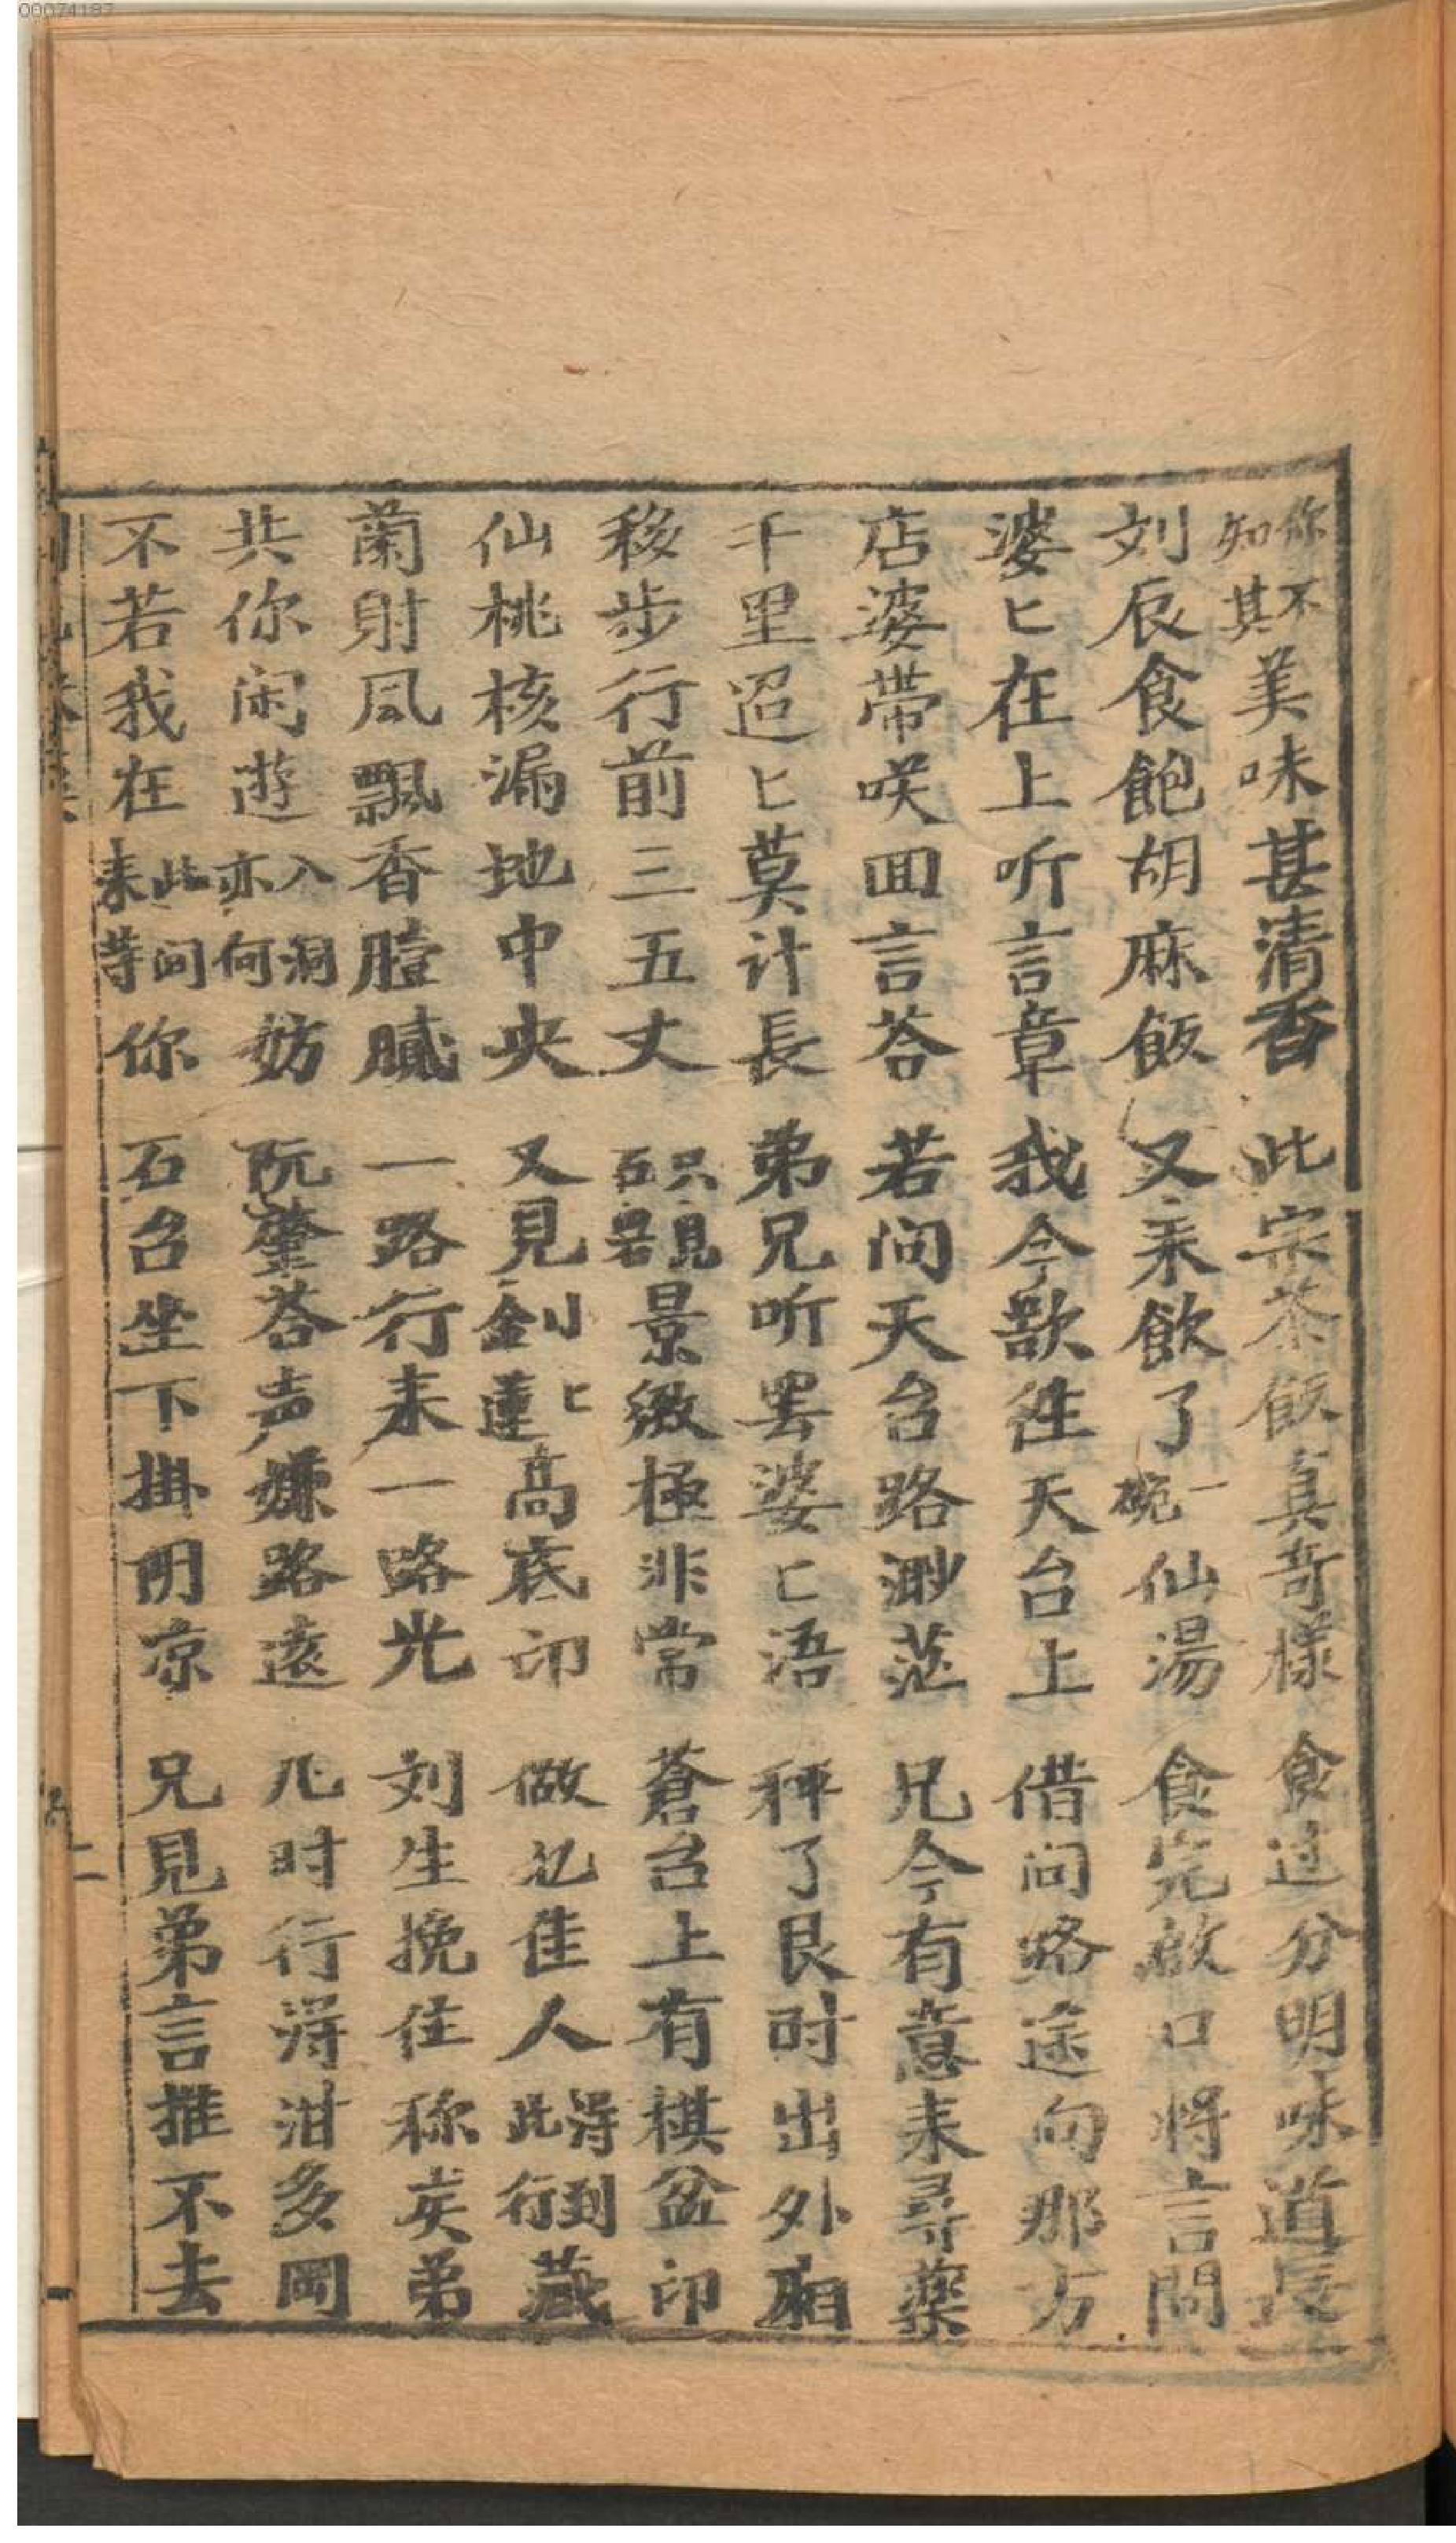 00074187
你不知其美味甚清香 此宗茶飯真奇樣 食过分明味道長
刘辰食飽胡麻飯 又来飲了一碗仙湯 食完啟口將言問
婆匕在上听言章 我今歆往天台上 借问路途向那方
店婆帶咲回言荅 若问天台路渺茫 兄今有意来尋藥
千里迢匕莫计長 弟兄听罢婆匕语 秤了艮时出外廂
移步行前三五丈 只見石岩景緻極非常 蒼台上有棋盆印
仙桃核漏地中央 又見小匕金蓮高底印 做乜佳人得到此行藏
蘭射风飄香膻膩 一路行来一路光 刘生挽住称矣弟
共你闲遊入洞亦何妨 阮肇荅声嫌路遠 几时行淂泔多岡
不若我在此间来等你 石台坐下掛阴凉 兄見弟言推不去
二